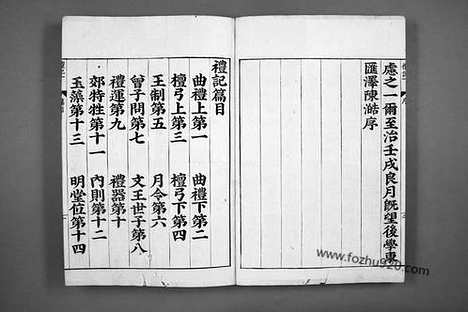 慮之一爾至治壬戌良月既望後學東
匯澤陳澔序
禮記篇目
曲禮上第一 曲禮下第二
檀弓上第三 檀弓下第四
王制第五 月令第六
曾子問第七 文王世子第八
禮運第九 禮器第十
郊特牲第十一 內則第十二
玉藻第十三 明堂位第十四
www.fozhu920.com